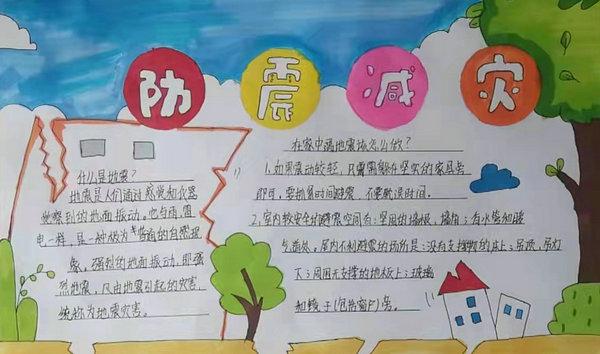 防震减灾
什么是地震?
地震是人们通过感觉和仪器
觉察到的地面振动。它与雨、雷
电一样,是一种极为普遍的自然现
象。强烈的地面振动,即强
烈地震,凡由地震引起的灾害,
统称为地震灾害。
在家中遇地震该怎么做?
1.如果震动较轻,只需躲在坚实的家具旁
即可,要抓紧时间避震,不要耽误时间。
2.室内较安全的避震空间有:坚固的墙根、墙角;有水管和暖
气道处。屋内不利避震的场所是:没有支撑物的床上;吊顶、吊灯
下;周围无支撑的地板上;玻璃
和镜子(包括窗户)旁。